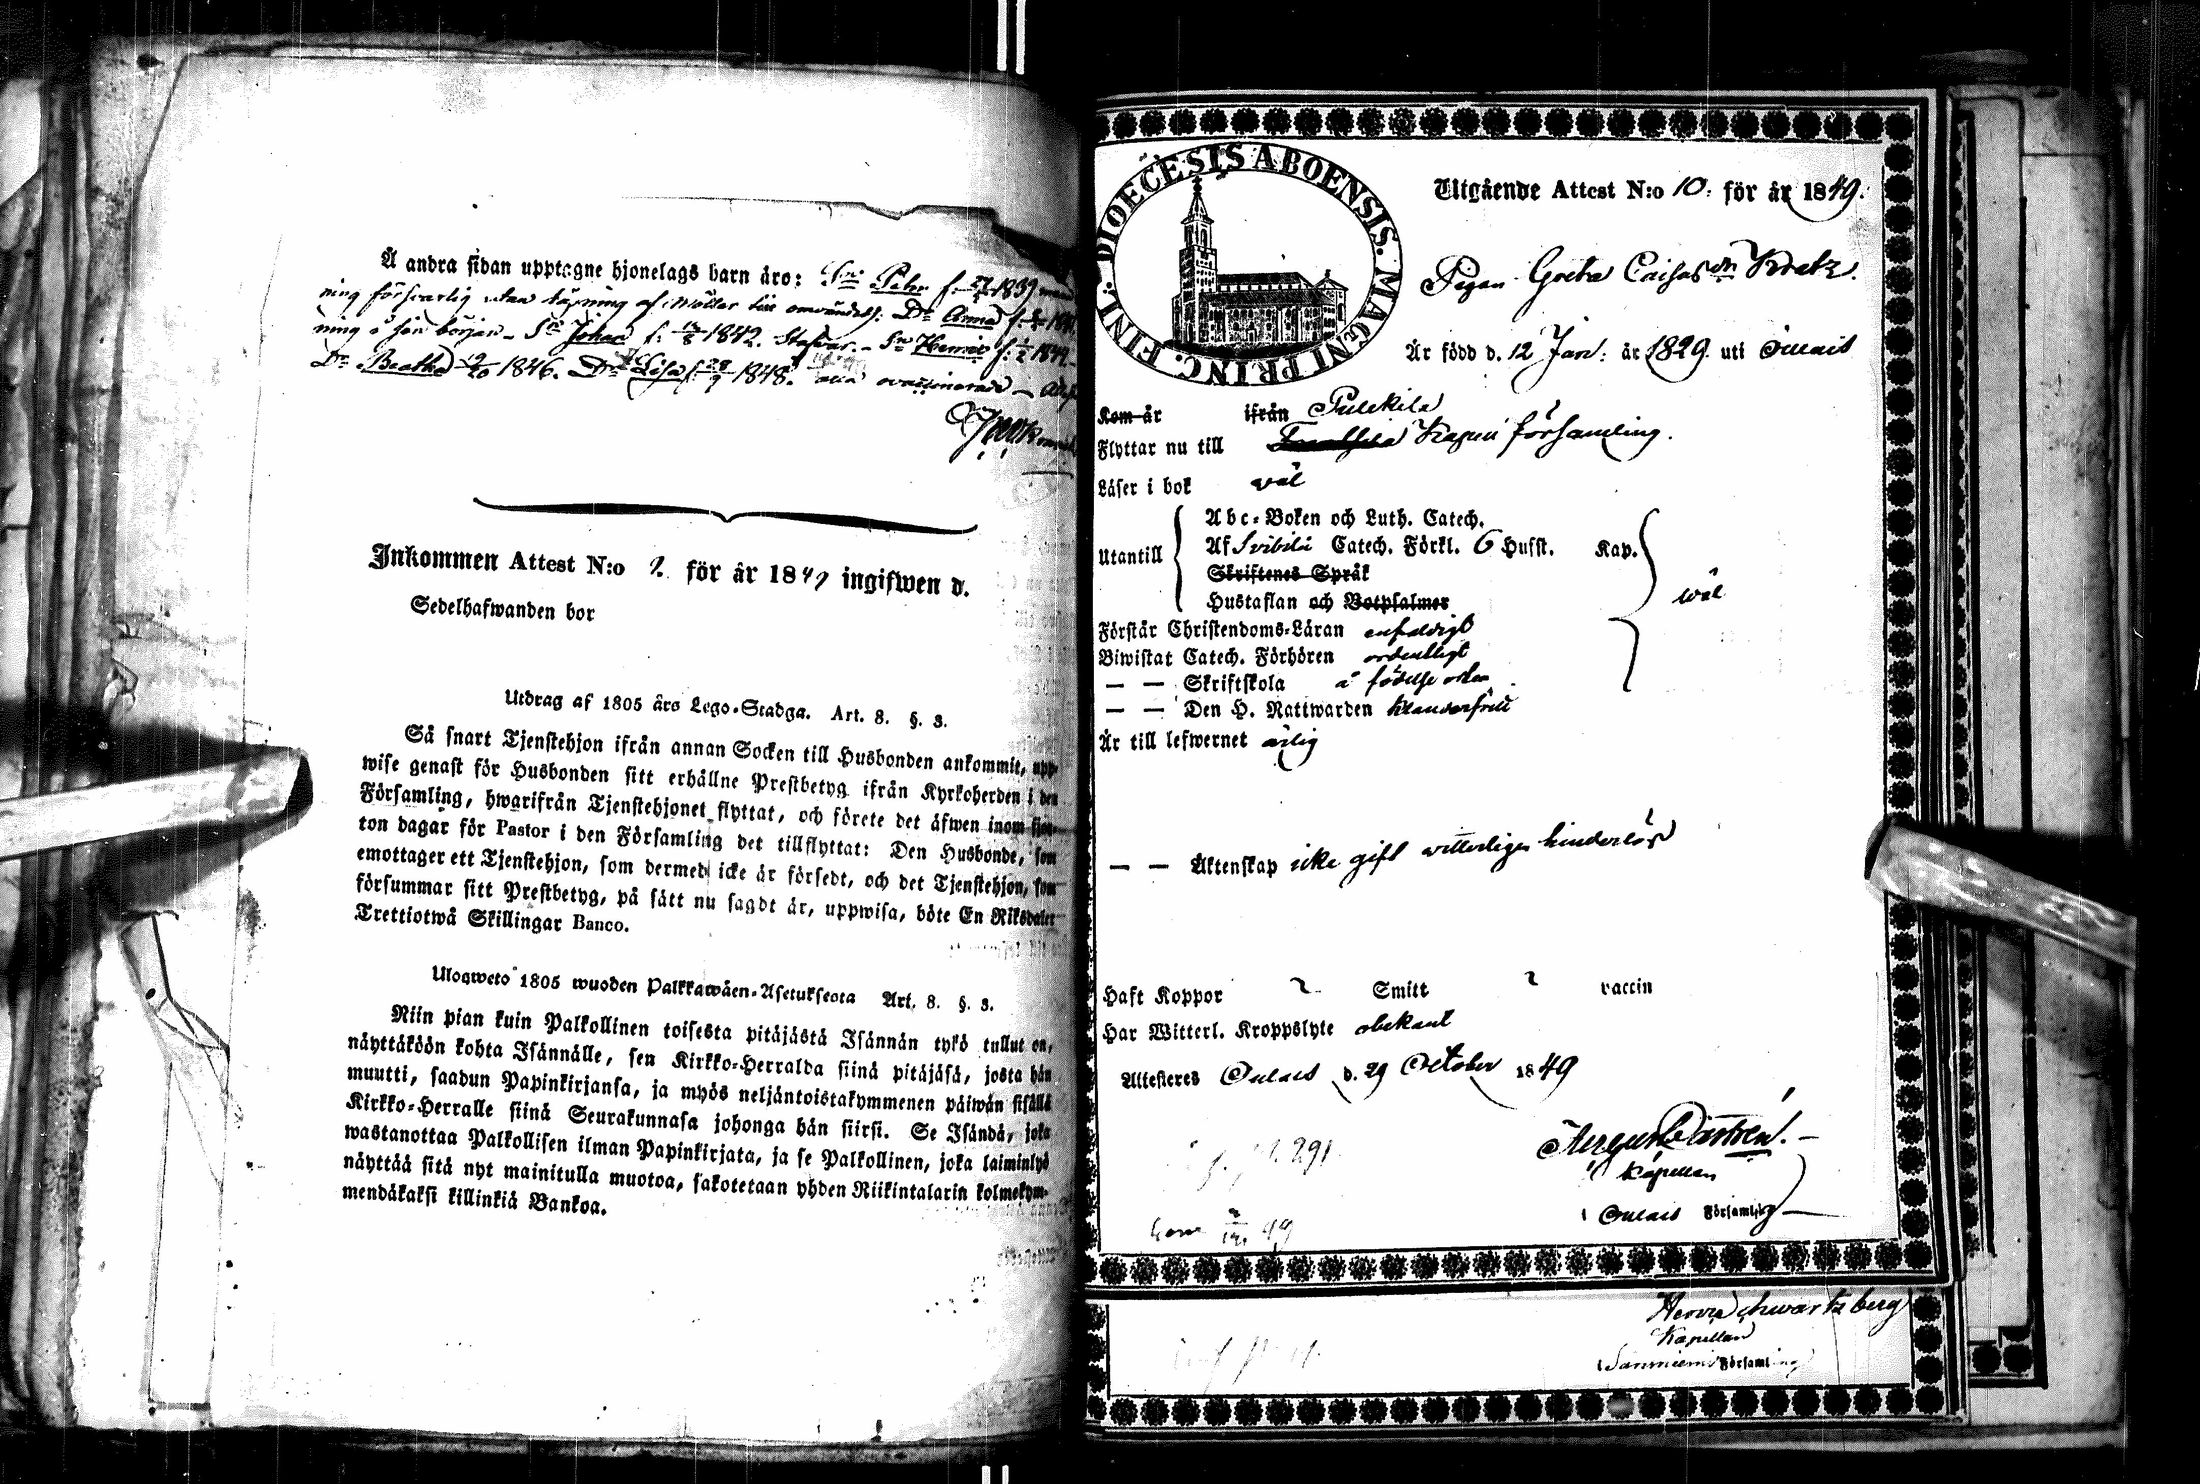 Å andra sidan upptagne hjonelags barn äro: Sn Pehr f. 1839
ning försvarlig utan af
ning å sön början - Sn Johan f. 1842. Stafvar. - Sn Henric f.
Dr Beatha 19/20 1846. Dr Lisa f. 28/9 1848. alla ovaccinerade -
Inkommen Attest N:o 2. för år 1849 ingifwen d.
Sedelhafwanden bor
Utdrag af 1805 års Lego-Stadga. Art. 8. §. 3.
Så snart Tjenstehjon ifrån annan Socken till Husbonden ankommit, upp-
wise genast för Husbonden sitt erhållne Prestbetyg ifrån Kyrkoherden i den
Församling, hwarifrån Tjenstehjonet flyttat, och förete det äfwen inom fjor-
ton dagar för Pastor i den Församling det tillflyttat: Den Husbonde, som
emottager ett Tjenstehjon, som dermed icke är försedt, och det Tjenstehjon, som
försummar sitt Prestbetyg, på sätt nu sagdt är, uppwisa, böte En Riksdaler
Trettiotwå Skillingar Banco.
Ulosweto 1805 wuoden Palkkawäen-Asetuksesta Art. 8. §. 3.
Niin pian kuin Palkollinen toisesta pitäjästä Isännän tykö tullut on,
näyttäköön kohta Isännälle, sen Kirkko-Herralda siinä pitäjäsä, josta hän
muutti, saadun Papinkirjansa, ja myös neljäntoistakymmenen päiwän sisällä
Kirkko-Herralle siinä Seurakunnasa johonga hän siirsi. Se Isändä, joka
wastanottaa Palkollisen ilman Papinkirjata, ja se Palkollinen, joka laiminlyö
näyttää sitä nyt mainitulla muotoa, sakotetaan yhden Riikintalarin kolmekym-
mendäkaksi killinkiä Bankoa.
DIOECESIS ABOENSIS. MAGNI PRINC. FINL.
Utgående Attest N:o 10. för år 1849.
Pigan Greta Caisa Kratz.
Är född d. 12 Jan: år 1829. uti Oulais
Kom år ifrån Pulkkila
Flyttar nu till Kapell församling.
Läser i bok väl
Abc-Boken och Luth. Catech.
Utantill Af Svibilii Catech. Förkl. 6 Husst. Kap.
Skriftenes Språk
Hustaflan och Botpsalmer wäl
Förstår Christendoms-Läran enfaldigt
Biwistat Catech. Förhören ordentligt
— — Skriftskola å födelse orten
— — Den H. Nattwarden klanderfritt
Är till lefwernet ärlig
— — Äktenskap icke gift witterligen hinderlös
Haft Koppor Smitt vaccin
Har Witterl. Kroppslyte obekant
Attesteras Oulais d. 29 October 1849
291
Castrén.
Kapellan
i Oulais Församling
49
Schwartzberg
Kapellan
Församling